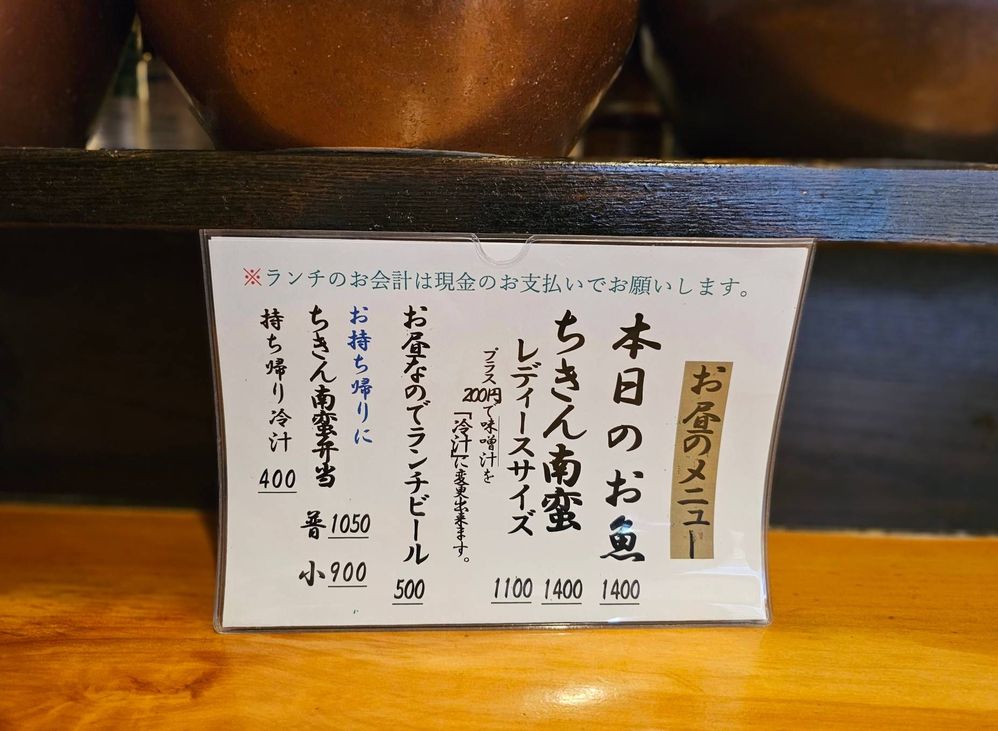 ※ランチのお会計は現金のお支払いでお願いします。
お昼のメニュー
本日のお魚 1400
ちきん南蛮 1400
レディースサイズ 1100
プラス200円で味噌汁を
「冷汁」に変更出来ます。
お昼なのでランチビール 500
お持ち帰りに
ちきん南蛮弁当
普 1050
小 900
持ち帰り冷汁 400